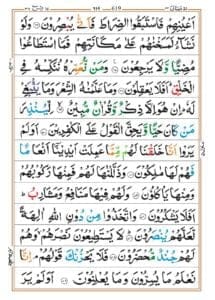 اَعْيُنِهِمْ فَاسْتَبَقُوا الصِّرَاطَ فَاَنّٰى يُبْصِرُوْنَ وَلَوْ
نَشَآءُ لَمَسَخْنٰهُمْ عَلٰى مَكَانَتِهِمْ فَمَا اسْتَطَاعُوْا
مُضِيًّا وَّلَا يَرْجِعُوْنَ وَمَنْ نُّعَمِّرْهُ نُنَكِّسْهُ فِى
الْخَلْقِ اَفَلَا يَعْقِلُوْنَ وَمَا عَلَّمْنٰهُ الشِّعْرَ وَمَا يَنْۢبَغِىْ لَهٗ
اِنْ هُوَ اِلَّا ذِكْرٌ وَّقُرْاٰنٌ مُّبِيْنٌ لِّيُنْذِرَ
مَنْ كَانَ حَيًّا وَّيَحِقَّ الْقَوْلُ عَلَى الْكٰفِرِيْنَ اَوَلَمْ
يَرَوْا اَنَّا خَلَقْنَا لَهُمْ مِّمَّا عَمِلَتْ اَيْدِيْنَاۤ اَنْعَامًا
فَهُمْ لَهَا مٰلِكُوْنَ وَذَلَّلْنٰهَا لَهُمْ فَمِنْهَا رَكُوْبُهُمْ
وَمِنْهَا يَاْكُلُوْنَ وَلَهُمْ فِيْهَا مَنَافِعُ وَمَشَارِبُ
اَفَلَا يَشْكُرُوْنَ وَاتَّخَذُوْا مِنْ دُوْنِ اللّٰهِ اٰلِهَةً
لَّعَلَّهُمْ يُنْصَرُوْنَ لَا يَسْتَطِيْعُوْنَ نَصْرَهُمْ وَهُمْ
لَهُمْ جُنْدٌ مُّحْضَرُوْنَ فَلَا يَحْزُنْكَ قَوْلُهُمْ اِنَّا
نَعْلَمُ مَا يُسِرُّوْنَ وَمَا يُعْلِنُوْنَ اَوَلَمْ يَرَ